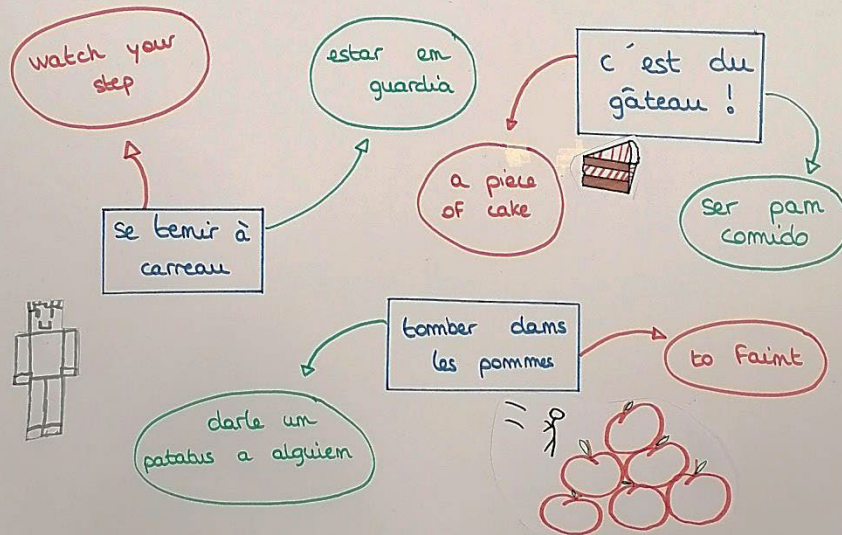 watch your
step
estar en
guardia
c'est du
gâteau !
a piece
of cake
ser pan
comido
se tenir à
carreau
tomber dans
les pommes
to faint
darle un
patatus a alguien